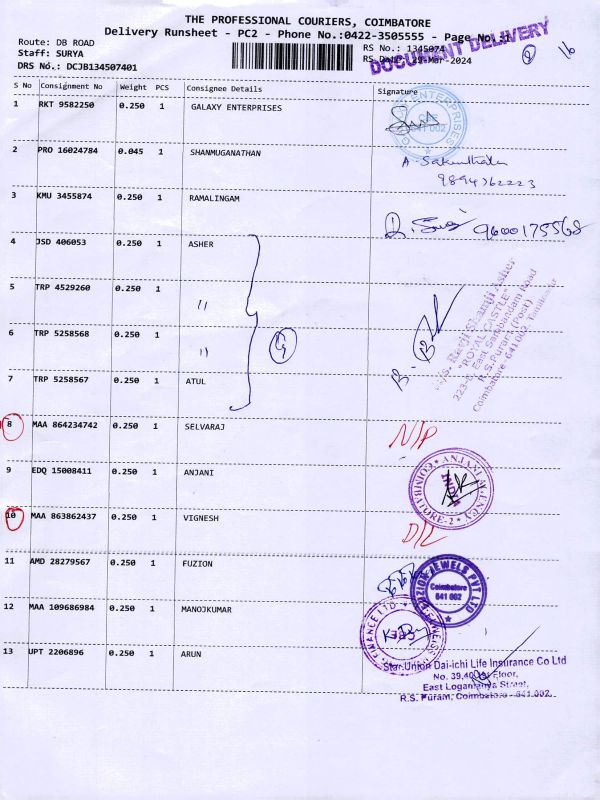 THE PROFESSIONAL COURIERS, COIMBATORE
Delivery Runsheet - PC2 - Phone No.:0422-3505555 - Page No.:1
Route: DB ROAD
Staff: SURYA
DRS No.: DCJB134507401
RS No.: 1345074
RS Date: 29-Mar-2024
DOCUMENT DELIVERY
S No Consignment No Weight PCS Consignee Details Signature
1 RKT 9582250 0.250 1 GALAXY ENTERPRISES
2 PRO 16024784 0.045 1 SHANMUGANATHAN
A. Sakunthala
9894762223
3 KMU 3455874 0.250 1 RAMALINGAM
9600175568
4 JSD 406053 0.250 1 ASHER
5 TRP 4529260 0.250 1 "
6 TRP 5258568 0.250 1 "
7 TRP 5258567 0.250 1 ATUL
M/s. Ravji Shamji Asher
"ROYAL CASTLE"
223-B, East Sambandam Road
R.S.Puram (Post)
Coimbatore - 641 002
8 MAA 864234742 0.250 1 SELVARAJ
N/P
9 EDQ 15008411 0.250 1 ANJANI
ANJANI AGENCY
INDIA
COIMBATORE-2
10 MAA 863862437 0.250 1 VIGNESH
D/L
11 AMD 28279567 0.250 1 FUZION
FUZION JEWELS PVT LTD
Coimbatore
641 002
12 MAA 109686984 0.250 1 MANOJKUMAR
13 UPT 2206896 0.250 1 ARUN
Star Union Dai-ichi Life Insurance Co Ltd
No. 39,40, Floor,
East Logamanya Street,
R.S. Puram, Coimbatore - 641 002.